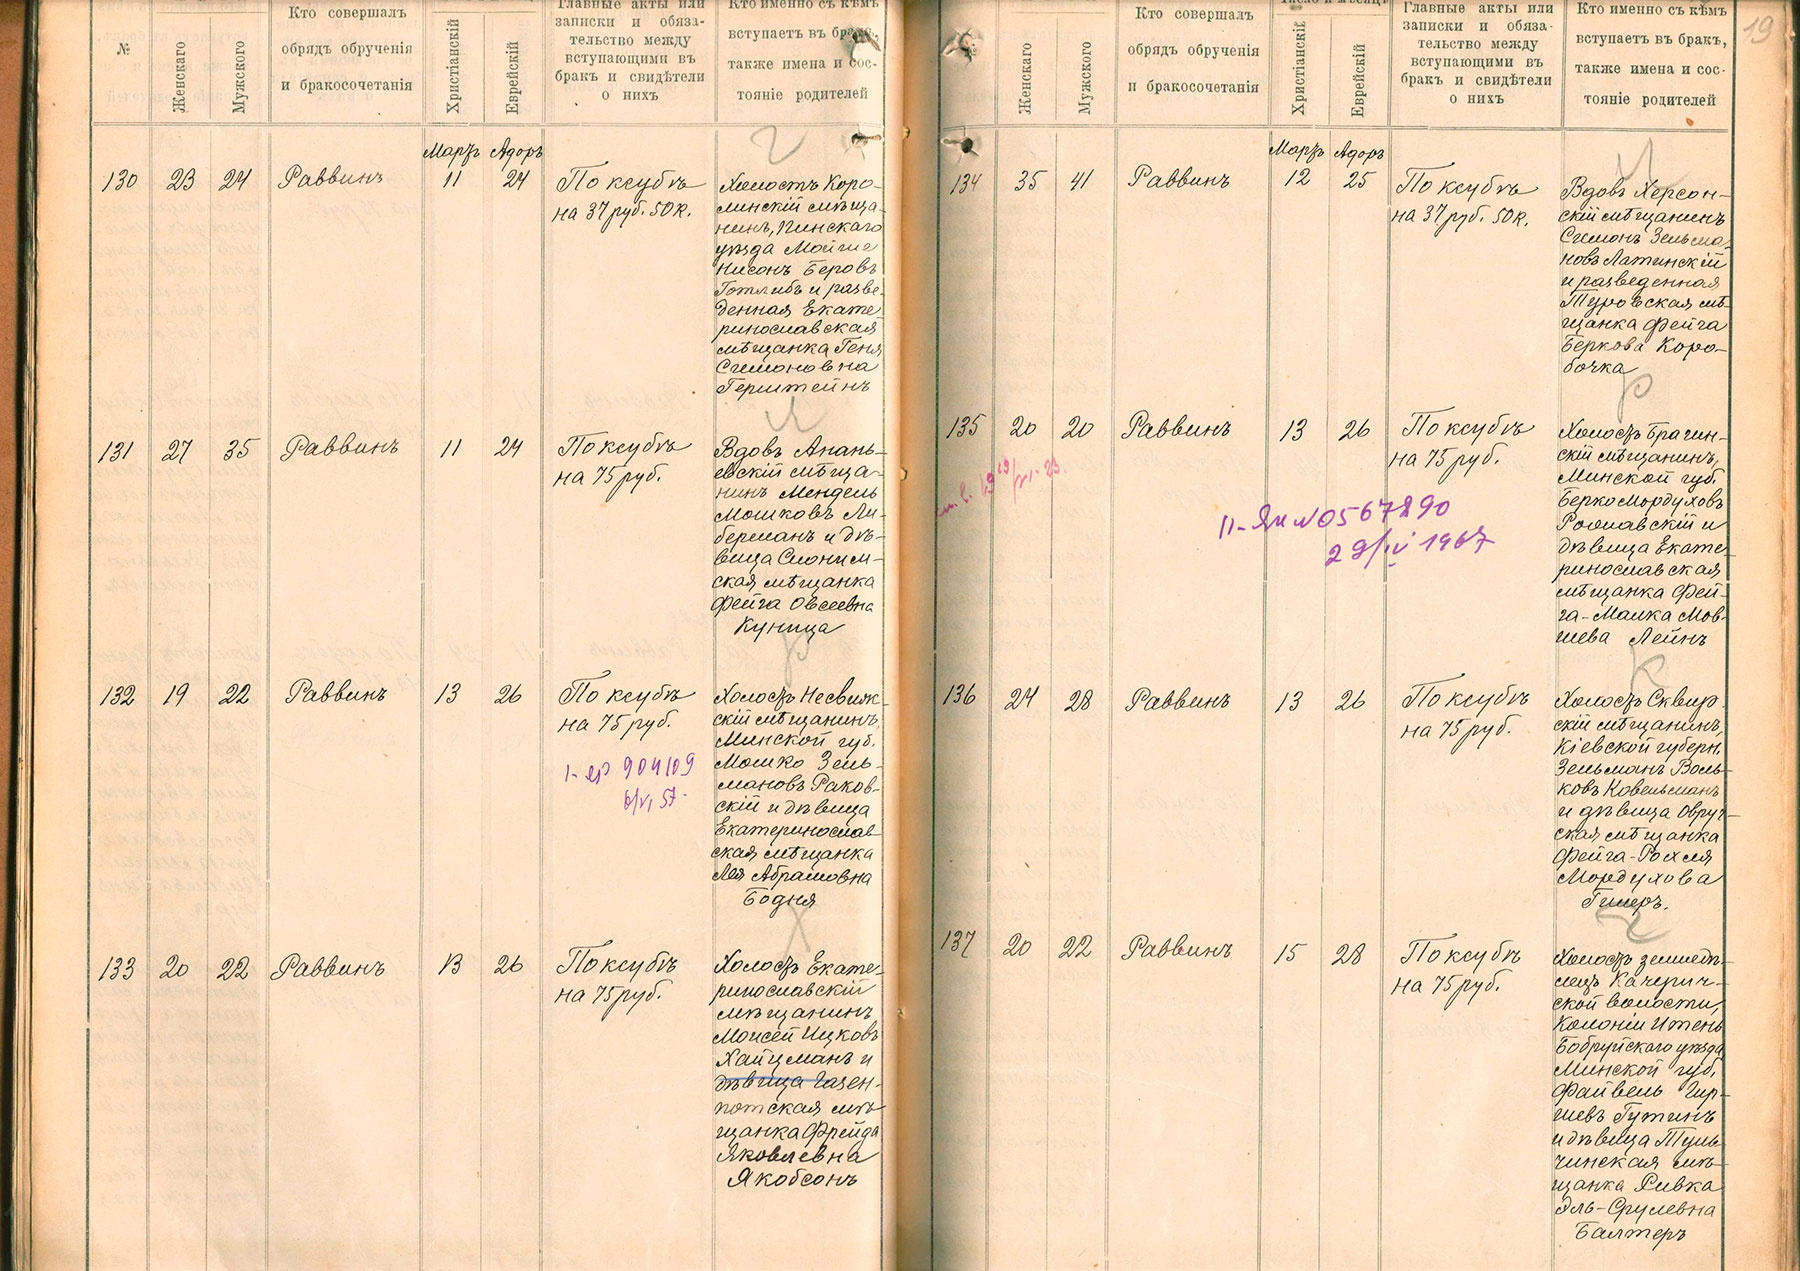 №
Женскаго
Мужского
Кто совершалъ
обрядъ обрученія
и бракосочетанія
Христіанскій
Еврейскій
Главные акты или
записки и обяза-
тельство между
вступающими въ
бракъ и свидѣтели
о нихъ
Кто именно съ кѣмъ
вступаетъ въ бракъ,
также имена и сос-
тояніе родителей
Мартъ Адоръ
130 23 24 Раввинъ 11 24
По ксубѣ
на 37 руб. 50 к.
Холостъ Коро-
линскій мѣща-
нинъ, Пинскаго
уѣзда Мойше
Нисонъ Беровъ
Готлибъ и разве-
денная Екате-
ринославская
мѣщанка Геня
Симоновна
Герштейнъ
131 27 35 Раввинъ 11 24
По ксубѣ
на 75 руб.
Вдовъ Анань-
евскій мѣща-
нинъ Мендель
Мошковъ Ли-
берманъ и дѣ-
вица Слоним-
ская мѣщанка
Фейга Овсеевна
Куница
132 19 22 Раввинъ 13 26
По ксубѣ
на 75 руб.
904109
Холостъ Несвиж-
скій мѣщанинъ,
Минской губ.
Мошко Зель-
мановъ Раков-
скій и дѣвица
Екатеринослав-
ская мѣщанка
Лея Абрамовна
Бодня
133 20 22 Раввинъ 13 26
По ксубѣ
на 75 руб.
Холостъ Екате-
ринославскій
мѣщанинъ
Моисей Ицковъ
Хайцманъ и
дѣвица Газен-
потская мѣ-
щанка Фрейда
Яковлевна
Якобсонъ
19
Женскаго
Мужского
Кто совершалъ
обрядъ обрученія
и бракосочетанія
Число и мѣсяцъ
Христіанскій
Еврейскій
Главные акты или
записки и обяза-
тельство между
вступающими въ
бракъ и свидѣтели
о нихъ
Кто именно съ кѣмъ
вступаетъ въ бракъ,
также имена и сос-
тояніе родителей
Мартъ Адоръ
134 35 41 Раввинъ 12 25
По ксубѣ
на 37 руб. 50 к.
Вдовъ Херсон-
скій мѣщанинъ
Симонъ Зельма-
новъ Латинскій
и разведенная
Туровская мѣ-
щанка Фейга
Беркова Коро-
бочка
135 20 20 Раввинъ 13 26
По ксубѣ
на 75 руб.
II-ЯИ №0567290
29/IV 1967
Холостъ Брагин-
скій мѣщанинъ,
Минской губ.
Берко Мордуховъ
Рославскій и
дѣвица Екате-
ринославская
мѣщанка Фей-
га-Малка Мов-
шева Лейнъ
136 24 28 Раввинъ 13 26
По ксубѣ
на 75 руб.
Холостъ Сквир-
скій мѣщанинъ,
Кіевской губерн.
Зельманъ Воль-
ковъ Ковельманъ
и дѣвица Овруч-
ская мѣщанка
Фейга-Рохля
Мордухова
Гилеръ.
137 20 22 Раввинъ 15 28
По ксубѣ
на 75 руб.
Холостъ земледѣ-
лецъ Качерич-
ской волости,
Колоніи Итень
Бобруйскаго уѣзда
Минской губ.
Файвель Гир-
шевъ Гутинъ
и дѣвица Туль-
чинская мѣ-
щанка Ривка
Эль-Срулевна
Балтеръ